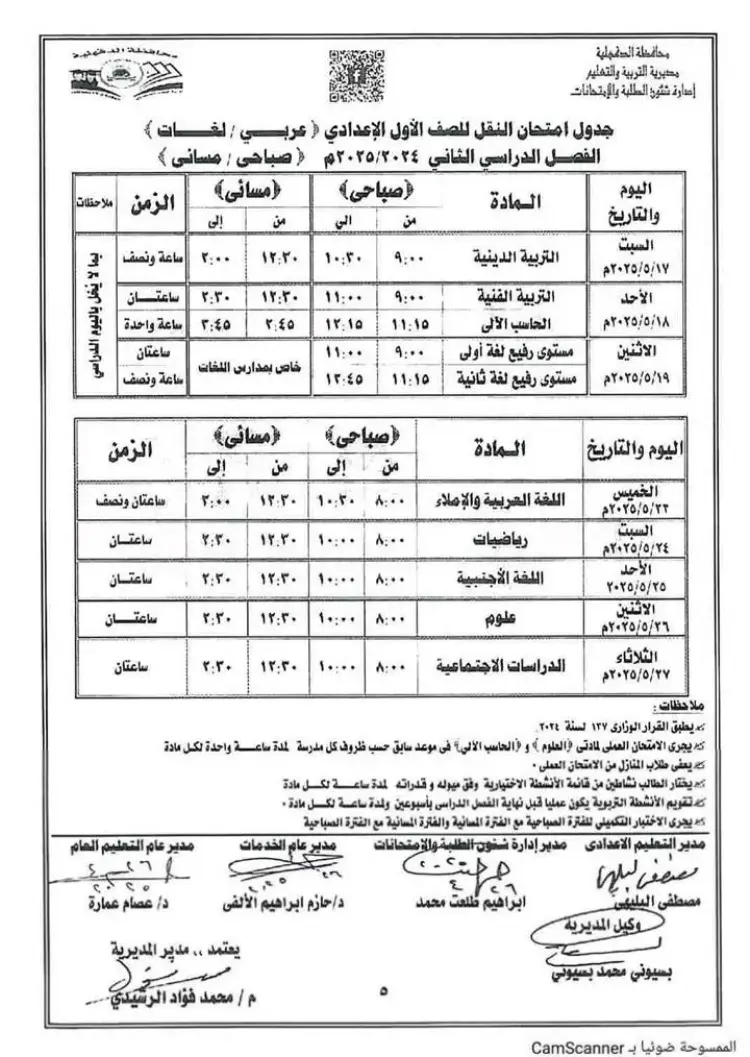 محافظة الدقهلية
مديرية التربية والتعليم
إدارة شئون الطلبة والإمتحانات
محافظة الدقهلية
جدول امتحان النقل للصف الأول الإعدادي ( عربي / لغات )
الفصل الدراسي الثاني ٢٠٢٥/٢٠٢٤م ( صباحى / مسائى )
اليوم والتاريخ المادة (صباحى) (مسائى) الزمن ملاحظات
من الى من إلى
السبت ٢٠٢٥/٥/١٧م التربية الدينية ٩:٠٠ ١٠:٣٠ ١٢:٣٠ ٢:٠٠ ساعة ونصف
بما لا يخل باليوم الدراسي
الأحد ٢٠٢٥/٥/١٨م التربية الفنية ٩:٠٠ ١١:٠٠ ١٢:٣٠ ٢:٣٠ ساعتـــان
الحاسب الآلى ١١:١٥ ١٢:١٥ ٢:٤٥ ٣:٤٥ ساعة واحدة
الاثنين ٢٠٢٥/٥/١٩م مستوى رفيع لغة أولى ٩:٠٠ ١١:٠٠ خاص بمدارس اللغات ساعتان
مستوى رفيع لغة ثانية ١١:١٥ ١٢:٤٥ ساعة ونصف
اليوم والتاريخ المادة (صباحى) (مسائى) الزمن
من إلى من إلى
الخميس ٢٠٢٥/٥/٢٢م اللغة العربية والإملاء ٨:٠٠ ١٠:٣٠ ١٢:٣٠ ٣:٠٠ ساعتان ونصف
السبت ٢٠٢٥/٥/٢٤م رياضيات ٨:٠٠ ١٠:٠٠ ١٢:٣٠ ٢:٣٠ ساعتـــان
الأحد ٢٠٢٥/٥/٢٥ اللغة الأجنبية ٨:٠٠ ١٠:٠٠ ١٢:٣٠ ٢:٣٠ ساعتـــان
الاثنين ٢٠٢٥/٥/٢٦م علوم ٨:٠٠ ١٠:٠٠ ١٢:٣٠ ٢:٣٠ ساعتـــان
الثلاثاء ٢٠٢٥/٥/٢٧م الدراسات الاجتماعية ٨:٠٠ ١٠:٠٠ ١٢:٣٠ ٢:٣٠ ساعتان
ملاحظات :
يطبق القرار الوزارى ١٣٧ لسنة ٢٠٢٤.
يجرى الامتحان العملى لمادتى (العلوم) و (الحاسب الآلى) فى موعد سابق حسب ظروف كل مدرسة لمدة ساعـــة واحدة لكل مادة
يعفى طلاب المنازل من الامتحان العملى .
يختار الطالب نشاطين من قائمة الأنشطة الاختيارية وفق ميوله و قدراته لمدة ساعـــة لكل مادة
تقويم الأنشطة التربوية يكون عمليا قبل نهاية الفصل الدراسى بأسبوعين ولمدة ساعـة لكل مادة .
يجرى الاختبار التكميلي للفترة الصباحية مع الفترة المسائية والفترة المسائية مع الفترة الصباحية
مدير التعليم الاعدادى مدير إدارة شئون الطلبة والإمتحانات مدير عام الخدمات مدير عام التعليم العام
مصطفى البليهى ابراهيم طلعت محمد د/حازم ابراهيم الألفى د/ عصام عمارة
وكيل المديرية
بسيوني محمد بسيوني
يعتمد ،، مدير المديرية
م / محمد فؤاد الرشيدي
٥
الممسوحة ضوئيا بـ CamScanner